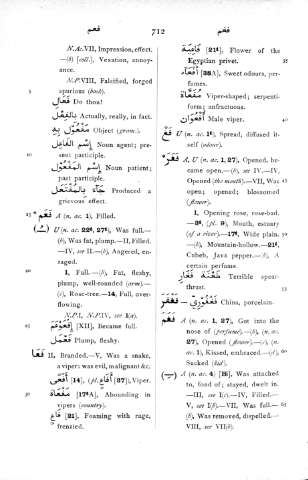 فعم
712
فغم
N.Ac.VII, Impression, effect.
—(b) [coll.], Vexation, annoy-
ance.
N.P.VIII, Falsified, forged
5 spurious (book).
فَعَالِ Do thou!
بِالفِعْل Actually, really, in fact.
مَفْعُول بِهِ Object (gram.).
إِسْم الفَاعِل Noun agent; pre-
10 sent participle.
إِسْم المَفْعُول Noun patient;
past participle.
جَاءَ بِالمُفْتَعَل Produced a
grievous effect.
فَعَمَ A (n. ac. 1), Filled.
U (n. ac. 22t, 27t), Was full.—
(b), Was fat, plump.—II, Filled.
—IV, see II.—(b), Angered, en-
raged.
20 1, Full.—(b), Fat, fleshy,
plump, well-rounded (arm).—
(c), Rose-tree.—14, Full, over-
flowing.
N.P.I, N.P.IV, see 1(a).
25 [XII], Became full.
Plump, fleshy.
فَعَا II, Branded.—V, Was a snake,
a viper: was evil, malignant &c.
أَفْعًى [14], (pl. أَفَاعٍ [37]), Viper.
30 مَفْعَاة [17tA], Abounding in
vipers (country).
فَاعٍ [21], Foaming with rage,
frensied.
فَاغِيَة [21t], Flower of the
Egyptian privet. 35
[38A], Sweet odours, per-
fumes.
مُفَعَّاة Viper-shaped; serpenti-
form anfractuous.
أُفْعُوَان Male viper. 40
فَغَّ U (n. ac. 1t), Spread, diffused it-
self (odour).
فَغَرَ A, U (n. ac. 1, 27), Opened, be-
came open.—(b), see IV.—IV,
Opened (the mouth).—VII, Was 45
open; opened; blossomed
(flower).
1, Opening rose, rose-bud.
—3t, (pl. 9), Mouth, estuary
(of a river).—17t, Wide plain. 50
—(b), Mountain-hollow.—21t,
Cubeb, Java pepper.—(b), A
certain perfume.
طَعْنَة فَغَار Terrible spear-
thrust. 55
فَغْفُورِيّ — فغفر China, porcelain.
فَغَمَ A (n. ac. 1, 27), Got into the
nose of (perfume).—(b), (n. ac.
27), Opened (flower).—(c), (n.
ac. 1), Kissed, embraced.—(d), 60
Sucked (kid).
A (n. ac. 4) [ب], Was attached
to, fond of; stayed, dwelt in.
—III, see I(c).—IV, Filled.—
V, see I(b).—VII, Was full.— 65
(b), Was removed, dispelled.—
VIII, see VII(b).